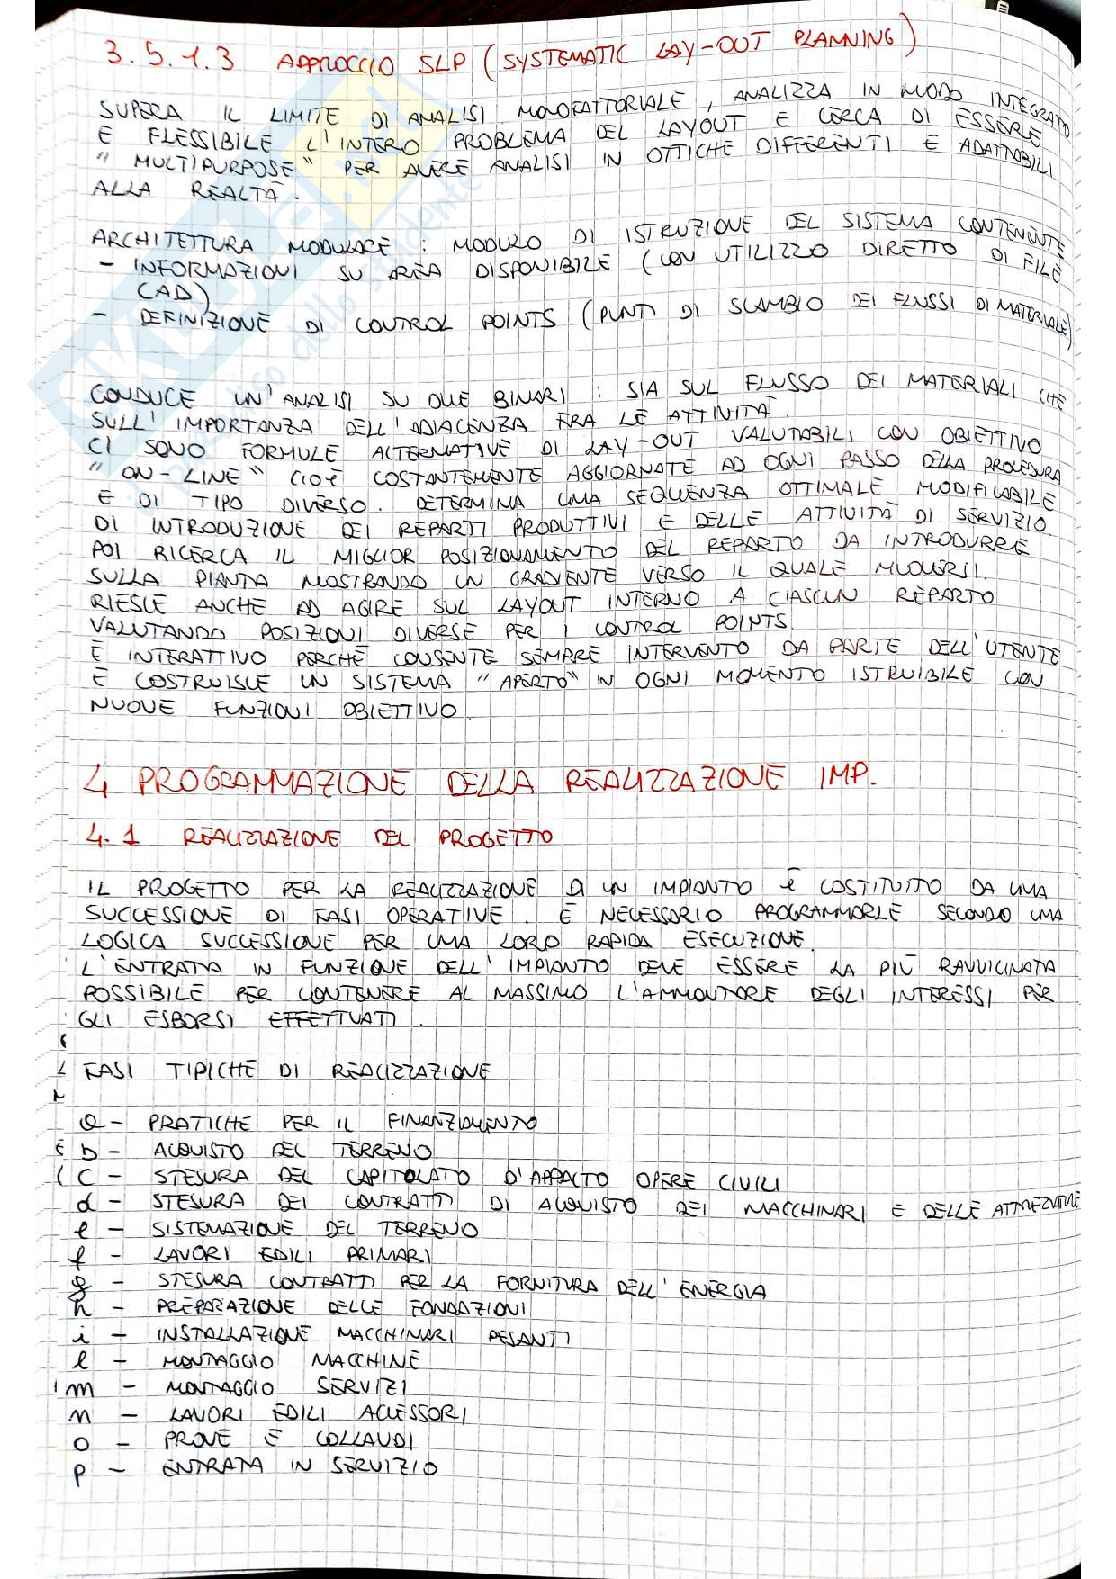 3.5.1.3 APPROCCIO SLP (SYSTEMATIC LAY-OUT PLANNING)
SUPERA IL LIMITE DI ANALISI MONOFATTORIALE, ANALIZZA IN MODO INTEGRATO
E FLESSIBILE L'INTERO PROBLEMA DEL LAYOUT E CERCA DI ESSERE
"MULTIPURPOSE" PER AVERE ANALISI IN OTTICHE DIFFERENTI E ADATTABILI
ALLA REALTÀ.
ARCHITETTURA MODULARE: MODULO DI ISTRUZIONE DEL SISTEMA CONTENENTE
- INFORMAZIONI SU AREA DISPONIBILE (CON UTILIZZO DIRETTO DI FILE
CAD)
- DEFINIZIONE DI CONTROL POINTS (PUNTI DI SCAMBIO DEI FLUSSI DI MATERIALE)
CONDUCE UN'ANALISI SU DUE BINARI: SIA SUL FLUSSO DEI MATERIALI CHE
SULL'IMPORTANZA DELL'ADIACENZA FRA LE ATTIVITÀ.
CI SONO FORMULE ALTERNATIVE DI LAY-OUT VALUTABILI CON OBIETTIVO
"ON-LINE" CIOÈ COSTANTEMENTE AGGIORNATE AD OGNI PASSO DELLA PROCEDURA
E DI TIPO DIVERSO. DETERMINA UNA SEQUENZA OTTIMALE MODIFICABILE
DI INTRODUZIONE DEI REPARTI PRODUTTIVI E DELLE ATTIVITÀ DI SERVIZIO.
POI RICERCA IL MIGLIOR POSIZIONAMENTO DEL REPARTO DA INTRODURRE
SULLA PIANTA MOSTRANDO UN GRADIENTE VERSO IL QUALE MUOVERSI.
RIESCE ANCHE AD AGIRE SUL LAYOUT INTERNO A CIASCUN REPARTO
VALUTANDO POSIZIONI DIVERSE PER I CONTROL POINTS.
È INTERATTIVO PERCHÉ CONSENTE SEMPRE INTERVENTO DA PARTE DELL'UTENTE
E COSTRUISCE UN SISTEMA "APERTO" IN OGNI MOMENTO ISTRUIBILE CON
NUOVE FUNZIONI OBIETTIVO.
4 PROGRAMMAZIONE DELLA REALIZZAZIONE IMP.
4.1 REALIZZAZIONE DEL PROGETTO
IL PROGETTO PER LA REALIZZAZIONE DI UN IMPIANTO È COSTITUITO DA UNA
SUCCESSIONE DI FASI OPERATIVE. È NECESSARIO PROGRAMMARLE SECONDO UNA
LOGICA SUCCESSIONE PER UNA LORO RAPIDA ESECUZIONE.
L'ENTRATA IN FUNZIONE DELL'IMPIANTO DEVE ESSERE LA PIÙ RAVVICINATA
POSSIBILE PER CONTENERE AL MASSIMO L'AMMONTARE DEGLI INTERESSI PER
GLI ESBORSI EFFETTUATI.
FASI TIPICHE DI REALIZZAZIONE
a - PRATICHE PER IL FINANZIAMENTO
b - ACQUISTO DEL TERRENO
c - STESURA DEL CAPITOLATO D'APPALTO OPERE CIVILI
d - STESURA DEI CONTRATTI DI ACQUISTO DEI MACCHINARI E DELLE ATTREZZATURE
e - SISTEMAZIONE DEL TERRENO
f - LAVORI EDILI PRIMARI
g - STESURA CONTRATTI PER LA FORNITURA DELL'ENERGIA
h - PREPARAZIONE DELLE FONDAZIONI
i - INSTALLAZIONE MACCHINARI PESANTI
l - MONTAGGIO MACCHINE
m - MONTAGGIO SERVIZI
n - LAVORI EDILI ACCESSORI
o - PROVE E COLLAUDI
p - ENTRATA IN SERVIZIO